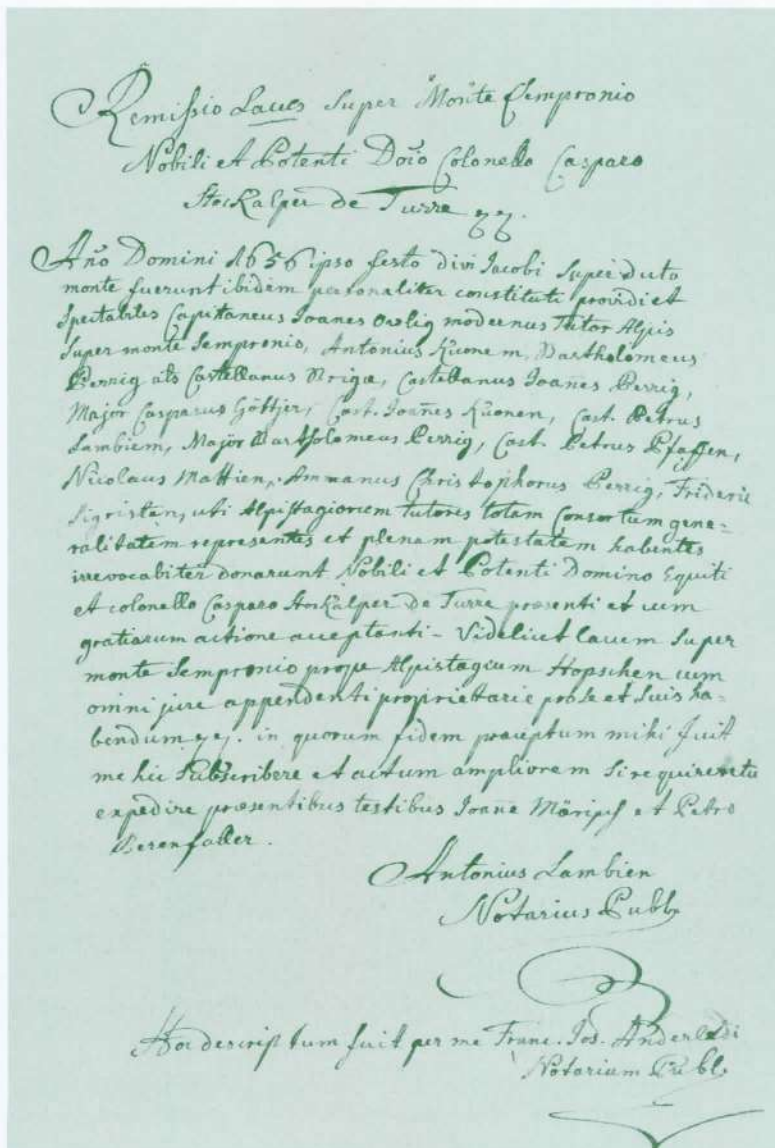 Remissio Laces Super Monte Sempronio
Nobili et Potenti Doïo Colonello Casparo
Stockalper de Turre
Año Domini 1656 ipso festo divi Jacobi Super dicto
monte fuerunt ibidem personaliter constituti providi et
Spectabiles Capitaneus Joanes Owlig modernus Tutor Alpis
Super monte Sempronio, Antonius Kuonem, Bartholomeus
Perrig als Castellanus Brigæ, Castellanus Joañes Perrig,
Major Casparus Göttjer, Cast. Joañes Kuonen, Cast. Petrus
Lambiem, Major Bartholomeus Perrig, Cast. Petrus Pfaffen,
Nicolaus Mattien, Ammanus Christophorus Perrig, Frideric
Sigristen, uti Alpistagiorum tutores totam Consortum gene-
ralitatem representes et plenam potestatem habentes
irrevocabiter donarunt Nobili et Potenti Domino Equiti
et colonello Casparo Stockalper de Turre præsenti et cum
gratiarum actione acceptanti - Videlicet lacem Super
monte Sempronio prope Alpistagium Hopschen cum
omni jure appendenti proprietarie pro se et Suis ha-
bendum in quorum fidem præceptum mihi fuit
me hic Subscribere et actum ampliorem si requireretu
expedire præsentibus testibus Joañe Märipf et Petro
Berenfaller.
Antonius Lambien
Notarius Publ
Hoc descriptum fuit per me Franc. Jos. Anderledi
Notarium Publ